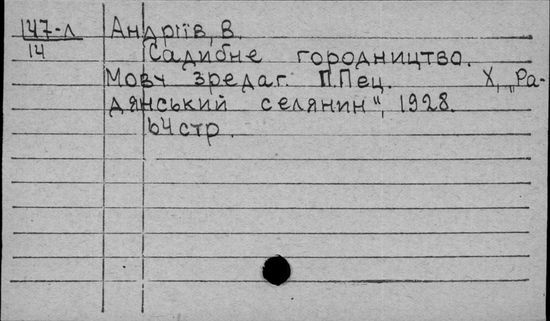 147-л Андріїв, В.
14
Садибне городництво.
Мову зредаг. П.Пец. Х, „Ра-
дянський селянин", 1928.
64 стр.